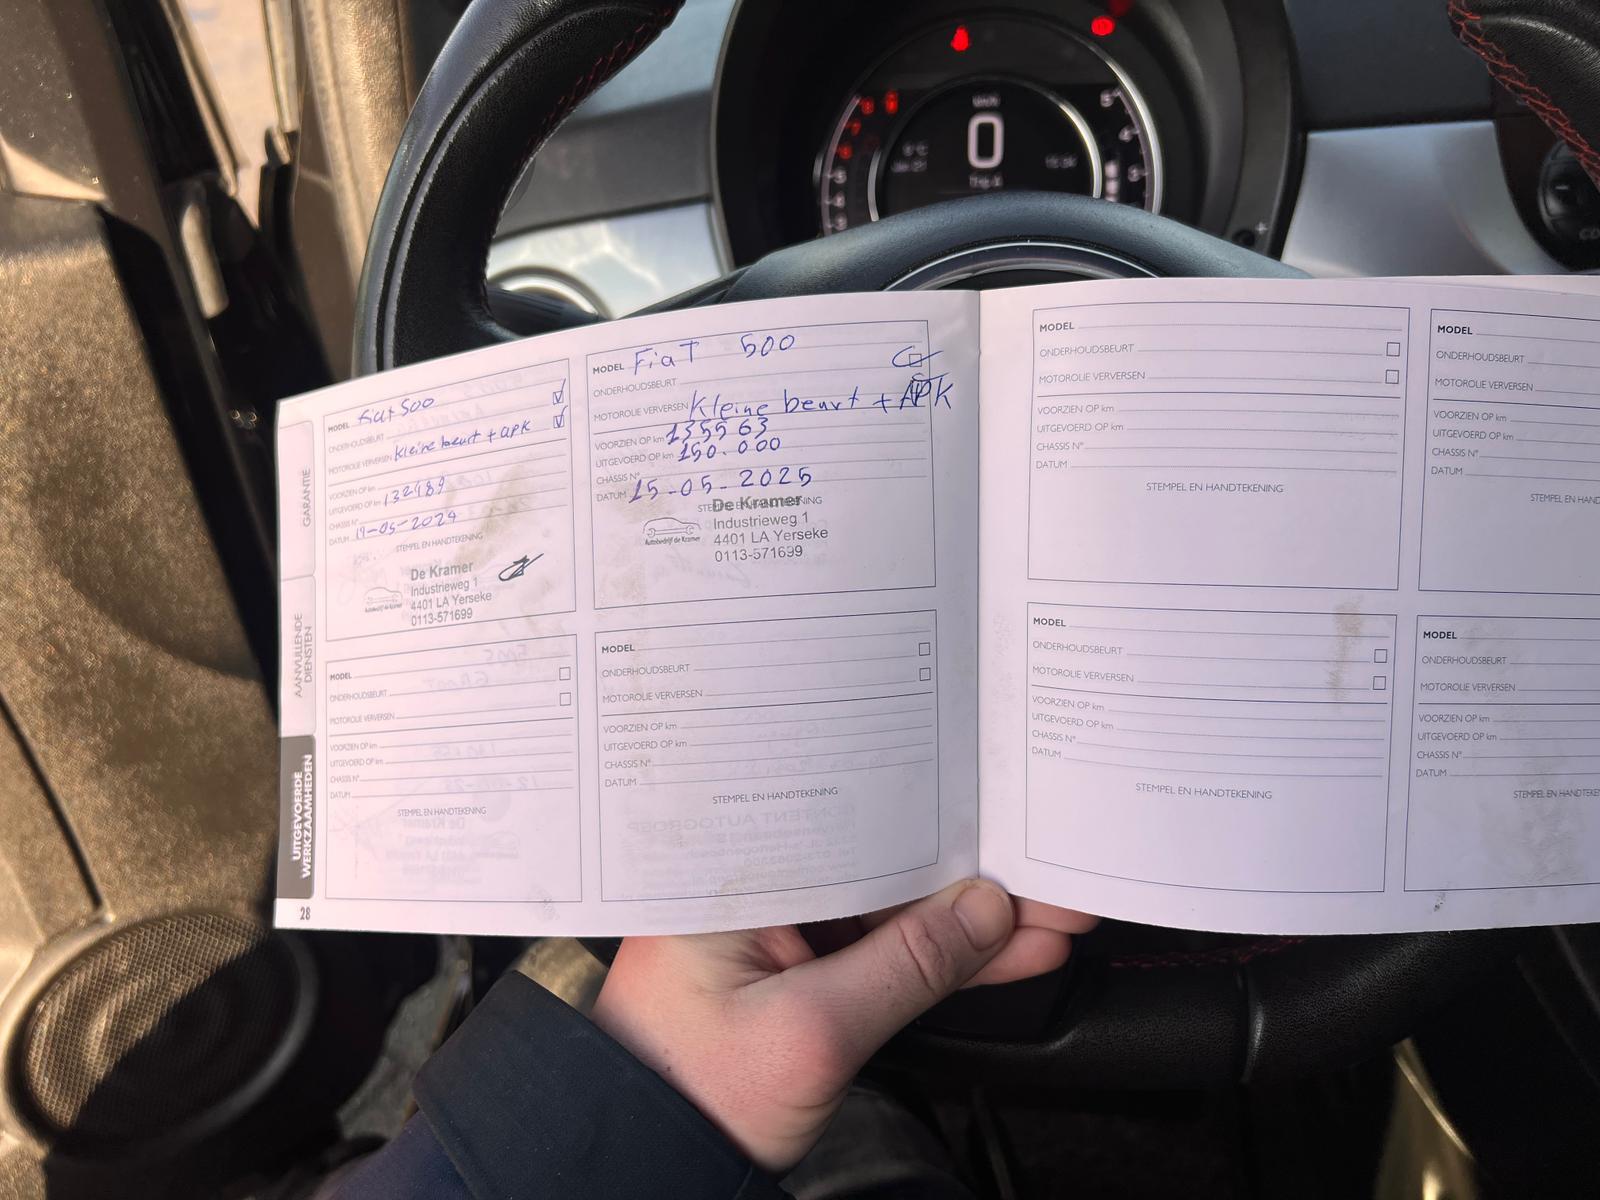 MAIN
0
Trip A
GARANTIE
AANVULLENDE
DIENSTEN
UITGEVOERDE
WERKZAAMHEDEN
28
MODEL Fiat 500
ONDERHOUDSBEURT
MOTOROLIE VERVERSEN Kleine beurt + apk
VOORZIEN OP km
UITGEVOERD OP km 132489
CHASSIS N°
DATUM 19-05-2024
STEMPEL EN HANDTEKENING
De Kramer
Industrieweg 1
4401 LA Yerseke
0113-571699
Autobedrijf de Kramer
MODEL FiaT 500
ONDERHOUDSBEURT
MOTOROLIE VERVERSEN Kleine beurt + APK
VOORZIEN OP km 135563
UITGEVOERD OP km 150.000
CHASSIS N°
DATUM 15-05-2025
STEMPEL EN HANDTEKENING
De Kramer
Industrieweg 1
4401 LA Yerseke
0113-571699
Autobedrijf de Kramer
MODEL
ONDERHOUDSBEURT
MOTOROLIE VERVERSEN
VOORZIEN OP km
UITGEVOERD OP km
CHASSIS N°
DATUM
STEMPEL EN HANDTEKENING
MODEL
ONDERHOUDSBEURT
MOTOROLIE VERVERSEN
VOORZIEN OP km
UITGEVOERD OP km
CHASSIS N°
DATUM
STEMPEL EN HANDTEKENING
MODEL
ONDERHOUDSBEURT
MOTOROLIE VERVERSEN
VOORZIEN OP km
UITGEVOERD OP km
CHASSIS N°
DATUM
STEMPEL EN HANDTEKENING
MODEL
ONDERHOUDSBEURT
MOTOROLIE VERVERSEN
VOORZIEN OP km
UITGEVOERD OP km
CHASSIS N°
DATUM
STEMPEL EN HAND
MODEL
ONDERHOUDSBEURT
MOTOROLIE VERVERSEN
VOORZIEN OP km
UITGEVOERD OP km
CHASSIS N°
DATUM
STEMPEL EN HANDTEKENING
MODEL
ONDERHOUDSBEURT
MOTOROLIE VERVERSEN
VOORZIEN OP km
UITGEVOERD OP km
CHASSIS N°
DATUM
STEMPEL EN HANDTEKE